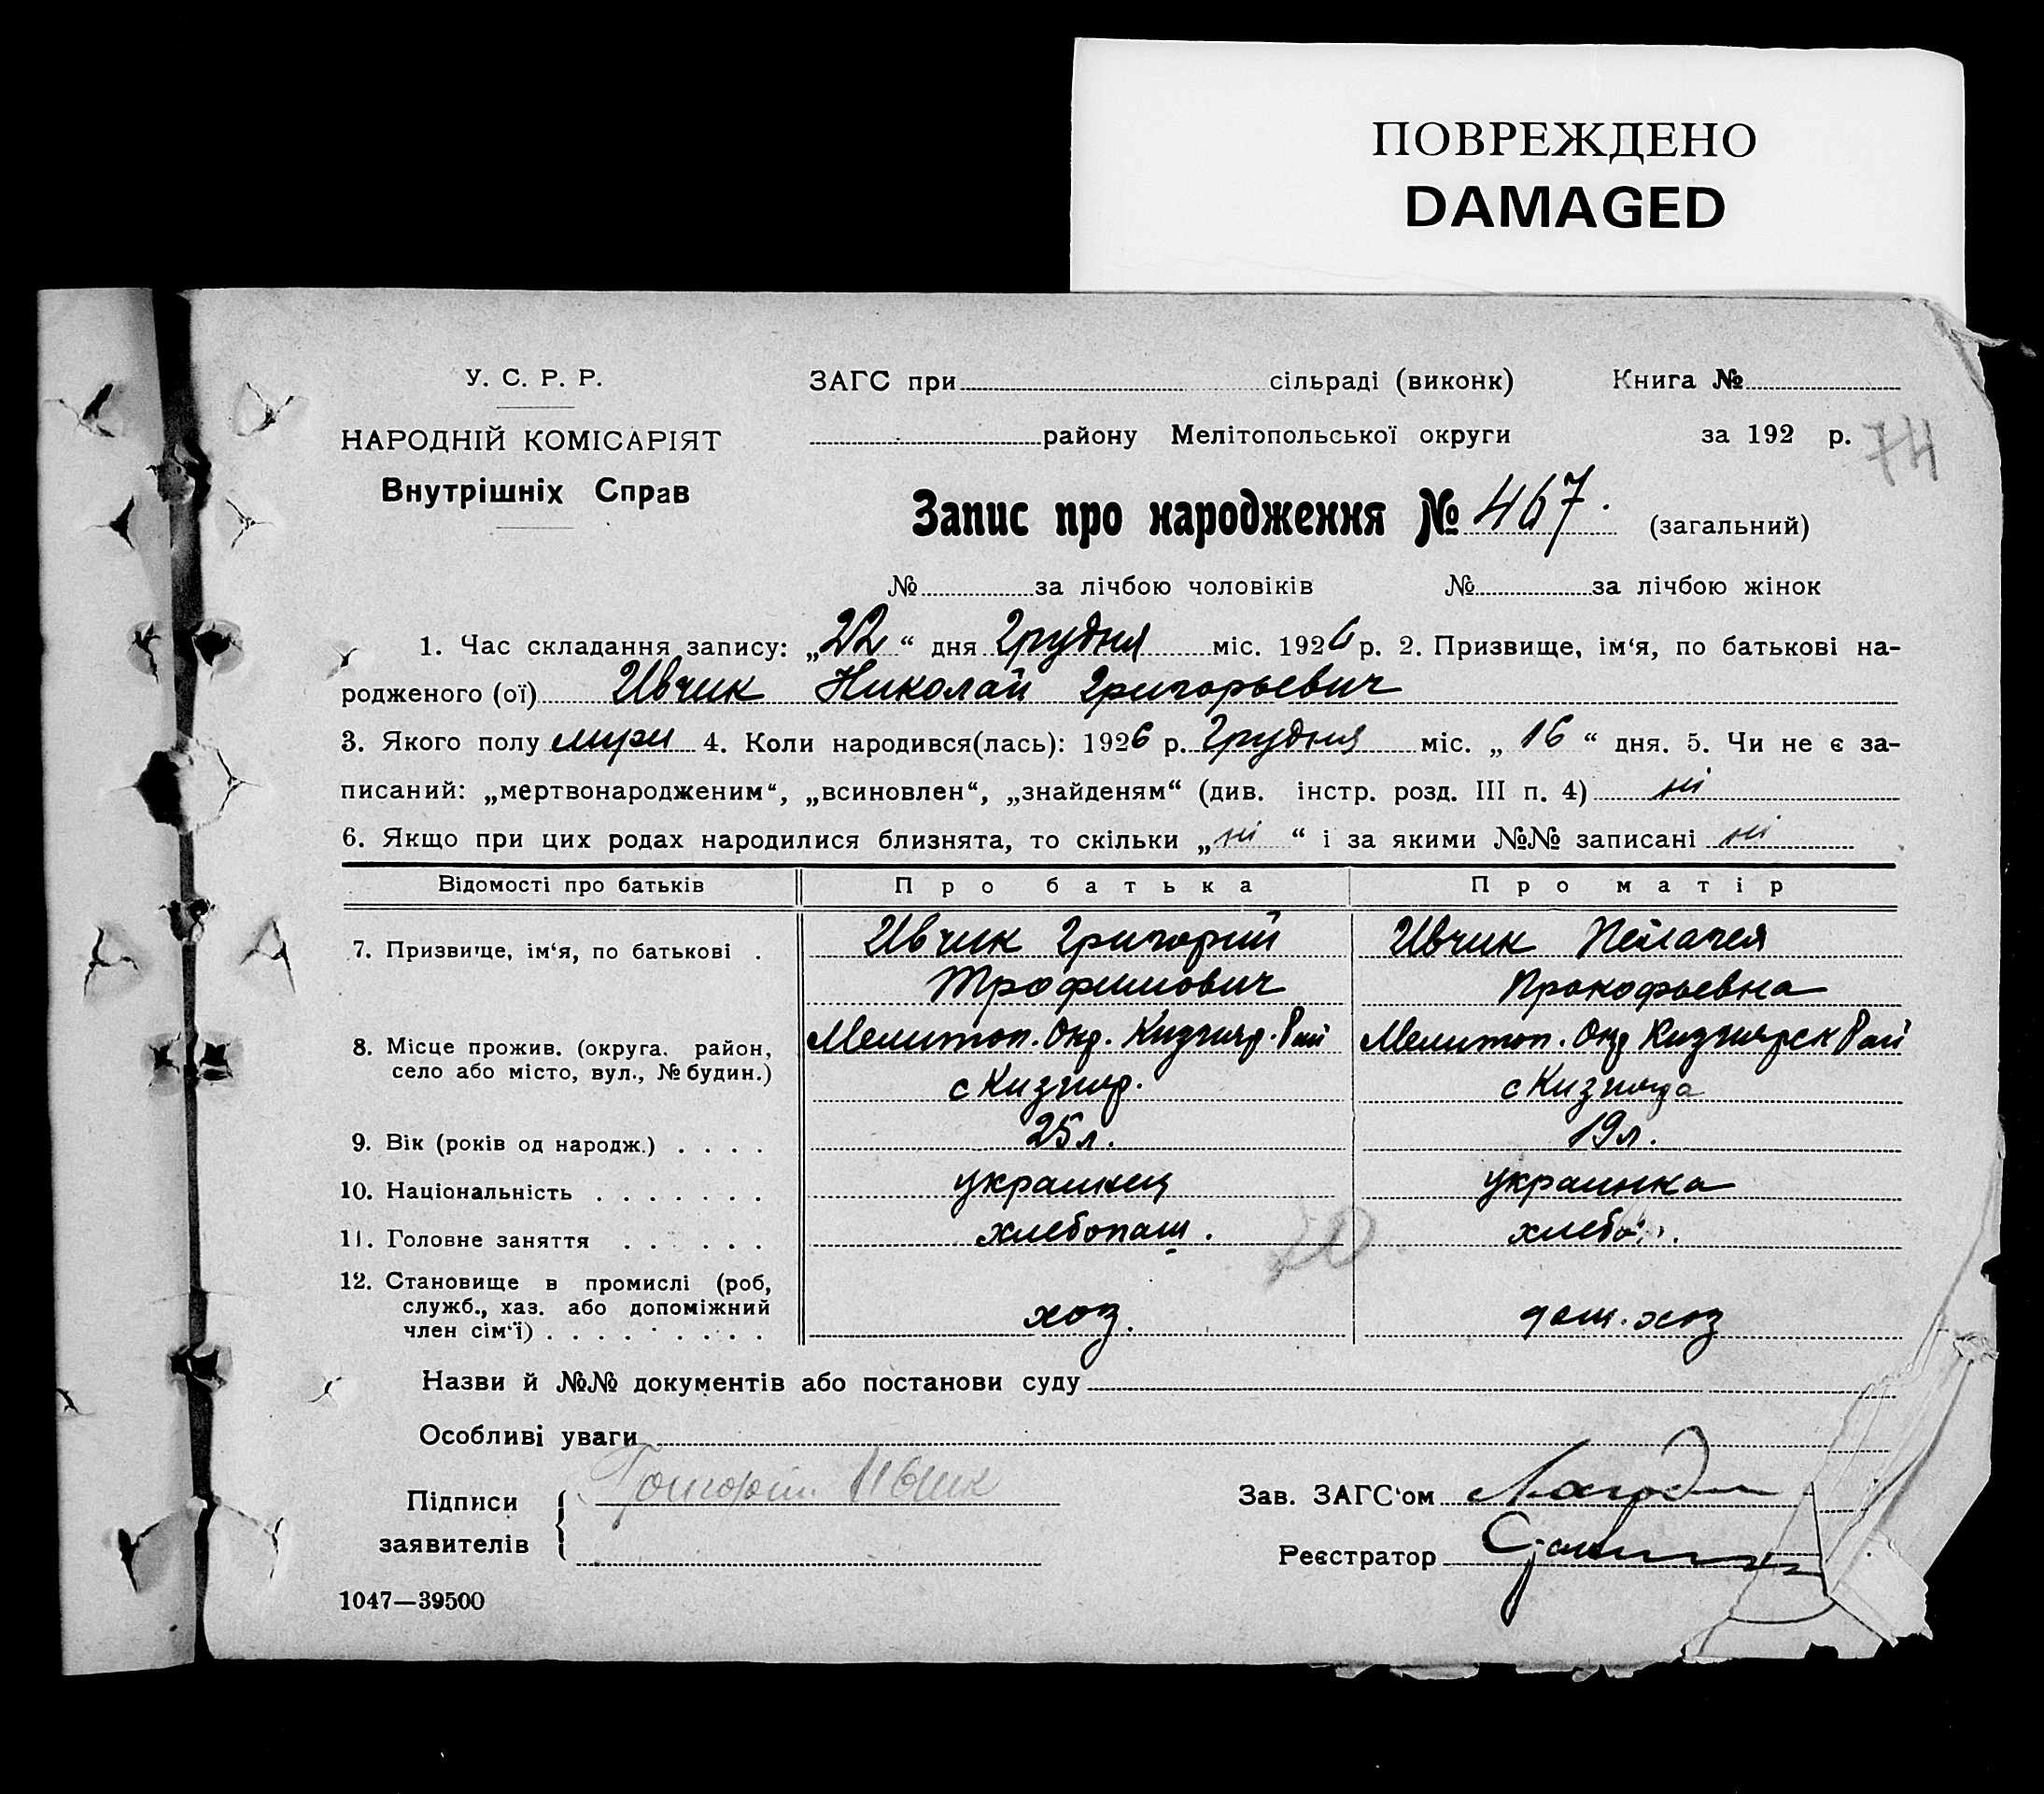 ПОВРЕЖДЕНО
DAMAGED
У. С. Р. Р.
НАРОДНІЙ КОМІСАРІЯТ
Внутрішніх Справ
ЗАГС при сільраді (виконк) Книга №
району Мелітопольської округи за 192 р.
74
Запис про народження № 467. (загальний)
№ за лічбою чоловіків № за лічбою жінок
1. Час складання запису: „22“ дня Грудня міс. 1926 р. 2. Призвище, ім‘я, по батькові на-
родженого (ої) Ивчик Николай Григорьевич
3. Якого полу 4. Коли народився(лась): 1926 р. Грудня міс. „16“ дня. 5. Чи не є за-
писаний: „мертвонародженим“, „всиновлен“, „знайденям“ (див. інстр. розд. III п. 4) ні
6. Якщо при цих родах народилися близнята, то скільки „ні“ і за якими №№ записані ні
Відомості про батьків Про батька Про матір
7. Призвище, ім‘я, по батькові . Ивчик Григорий Ивчик Пелагея
Трофимович Прокофьевна
8. Місце прожив. (округа, район, Мелитоп. Окр. Кизияр. Рай Мелитоп. Окр Кизиярск Рай
село або місто, вул., № будин.) с Кизияр. с Кизияра
9. Вік (років од народж.) . . . . 25 л. 19 л.
10. Національність . . . . . . . украинец украинка
11. Головне заняття . . . . . . хлебопаш. хлебо
12. Становище в промислі (роб,
служб., хаз. або допоміжний
член сім‘ї) . . . . . . . . . хоз. дом. хоз
Назви й №№ документів або постанови суду
Особливі уваги
Підписи Григорий Ивчик Зав. ЗАГС‘ом
заявителів Реєстратор
1047—39500